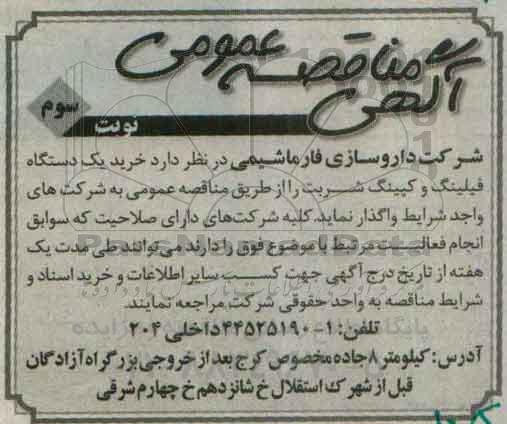 آگهی مناقصه عمومی
نوبت سوم
شرکت داروسازی فارماشیمی در نظر دارد خرید یک دستگاه
فیلینگ و کپینگ شربت را از طریق مناقصه عمومی به شرکت های
واجد شرایط واگذار نماید. کلیه شرکت‌های دارای صلاحیت که سوابق
انجام فعالیت مرتبط با موضوع فوق را دارند می‌توانند طی مدت یک
هفته از تاریخ درج آگهی جهت کسب سایر اطلاعات و خرید اسناد و
شرایط مناقصه به واحد حقوقی شرکت مراجعه نمایند.
تلفن: ۱-۴۴۵۲۵۱۹۰ داخلی ۲۰۴
آدرس: کیلومتر ۸ جاده مخصوص کرج بعد از خروجی بزرگراه آزادگان
قبل از شهرک استقلال خ شانزدهم خ چهارم شرقی